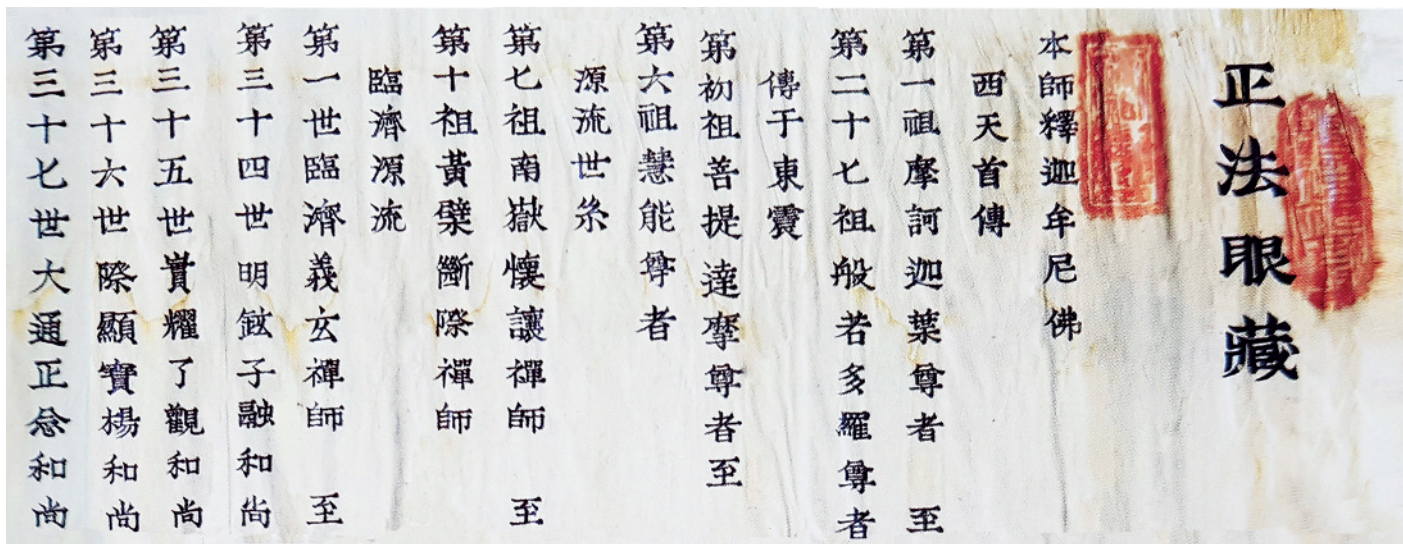 正法眼藏
本師釋迦牟尼佛
西天首傳
第一祖摩訶迦葉尊者 至
第二十七祖般若多羅尊者
傳于東震
第初祖菩提達摩尊者至
第六祖慧能尊者
源流世系
第七祖南嶽懷讓禪師 至
第十祖黃檗斷際禪師
臨濟源流
第一世臨濟義玄禪師 至
第三十四世明鉉子融和尚
第三十五世實耀了觀和尚
第三十六世際顯寶楊和尚
第三十七世大通正念和尚